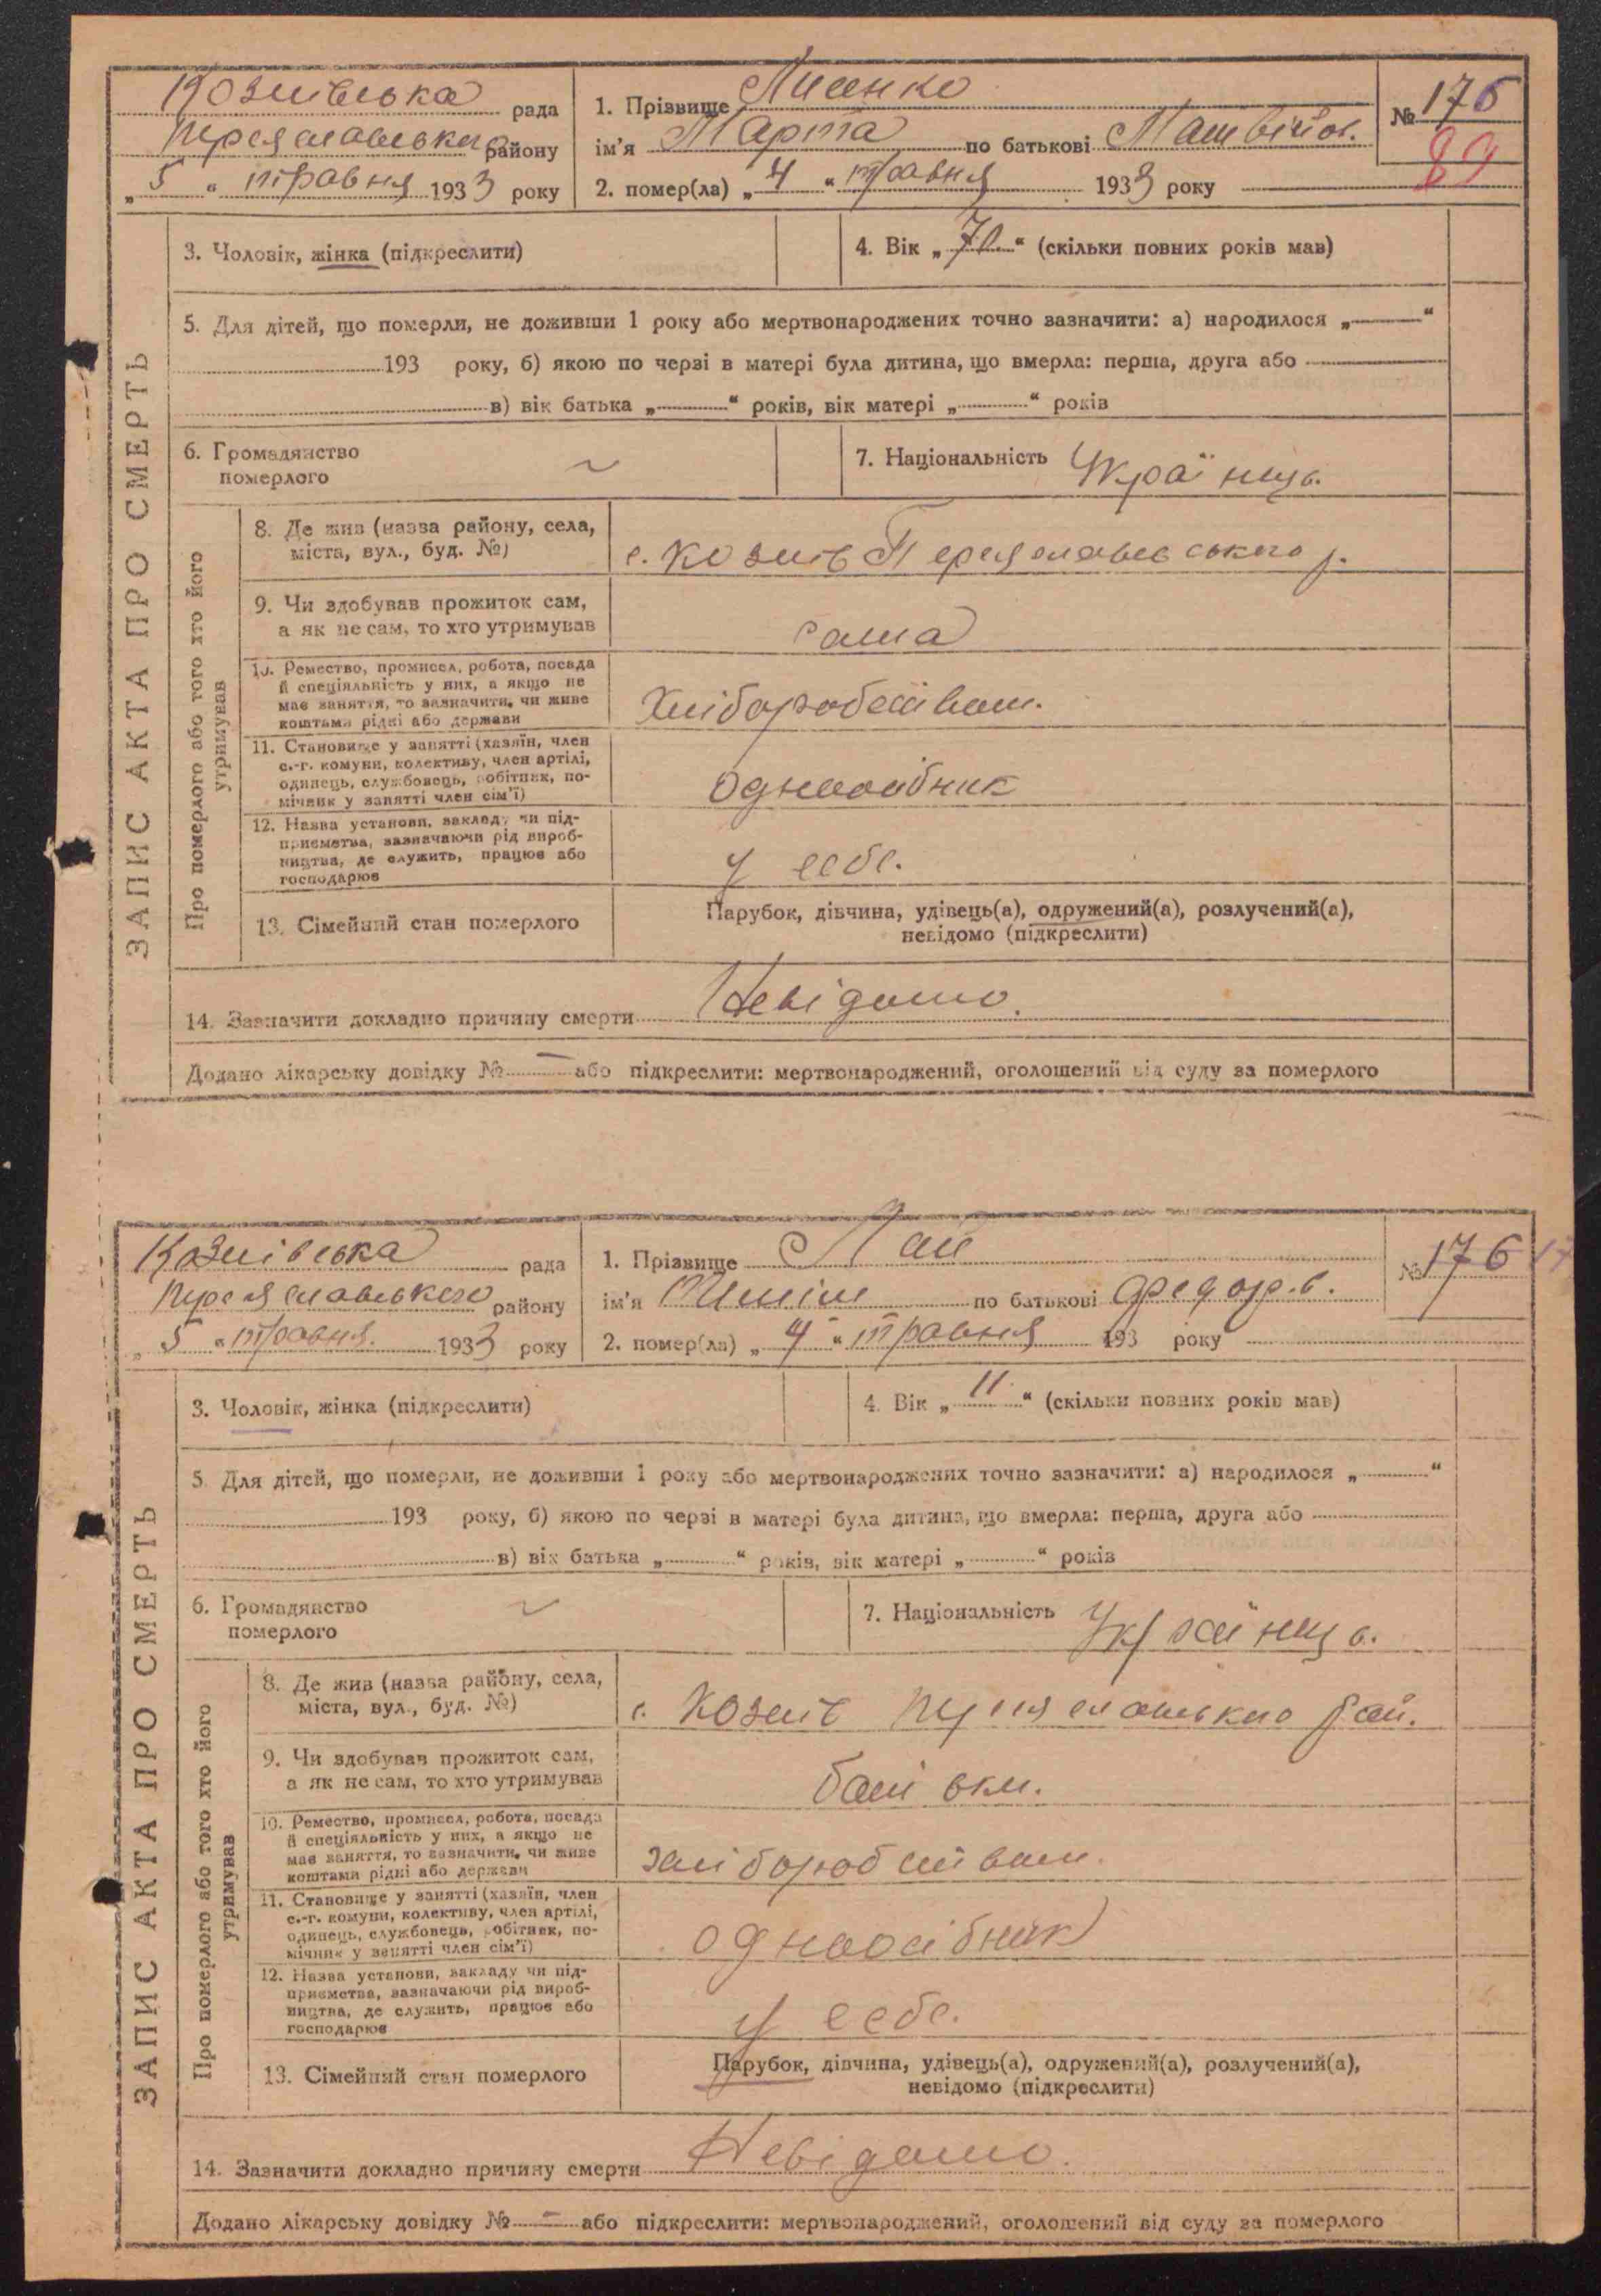 ЗАПИС АКТА ПРО СМЕРТЬ
Козлівська рада
Переяславського району
„ 5 “ травня 1933 року
1. Прізвище Лисенко
ім'я Марта по батькові Матвійов.
2. помер(ла) „ 4 “ травня 1933 року
№ 176
89
3. Чоловік, жінка (підкреслити)
4. Вік „ 70. “ (скільки повних років мав)
5. Для дітей, що померли, не доживши 1 року або мертвонароджених точно зазначити: а) народилося „ “
193 року, б) якою по черзі в матері була дитина, що вмерла: перша, друга або
в) вік батька „ “ років, вік матері „ “ років
6. Громадянство
померлого
7. Національність Українць.
Про померлого або того хто його
утримував
8. Де жив (назва району, села,
міста, вул., буд. №)
с. Козлів Переяславського р.
9. Чи здобував прожиток сам,
а як не сам, то хто утримував
сама
10. Ремество, промисел, робота, посада
й спеціяльність у них, а якщо не
має заняття, то зазначити, чи живе
коштами рідні або держави
Хліборобством.
11. Становище у занятті (хазяїн, член
с.-г. комуни, колективу, член артілі,
одинець, службовець, робітник, по-
мічник у занятті член сім'ї)
одноосібник
12. Назва установи, закладу чи під-
приємства, зазначаючи рід вироб-
ництва, де служить, працює або
господарює
у себе.
13. Сімейний стан померлого
Парубок, дівчина, удівець(а), одружений(а), розлучений(а),
невідомо (підкреслити)
14. Зазначити докладно причину смерти Невідомо.
Додано лікарську довідку № — або підкреслити: мертвонароджений, оголошений від суду за померлого
ЗАПИС АКТА ПРО СМЕРТЬ
Козлівська рада
Переяславського району
„ 5 “ травня. 1933 року
1. Прізвище
ім'я по батькові Федор.в.
2. помер(ла) „ 4 “ травня 193 року
№ 176 17
3. Чоловік, жінка (підкреслити)
4. Вік „ 11. “ (скільки повних років мав)
5. Для дітей, що померли, не доживши 1 року або мертвонароджених точно зазначити: а) народилося „ “
193 року, б) якою по черзі в матері була дитина, що вмерла: перша, друга або
в) вік батька „ “ років, вік матері „ “ років
6. Громадянство
померлого
7. Національність Українць.
Про померлого або того хто його
утримував
8. Де жив (назва району, села,
міста, вул., буд. №)
с. Козлів Переяславського рай.
9. Чи здобував прожиток сам,
а як не сам, то хто утримував
батьком.
10. Ремество, промисел, робота, посада
й спеціяльність у них, а якщо не
має заняття, то зазначити, чи живе
коштами рідні або держави
Хліборобством.
11. Становище у занятті (хазяїн, член
с.-г. комуни, колективу, член артілі,
одинець, службовець, робітник, по-
мічник у занятті член сім'ї)
одноосібник
12. Назва установи, закладу чи під-
приємства, зазначаючи рід вироб-
ництва, де служить, працює або
господарює
у себе.
13. Сімейний стан померлого
Парубок, дівчина, удівець(а), одружений(а), розлучений(а),
невідомо (підкреслити)
14. Зазначити докладно причину смерти Невідомо.
Додано лікарську довідку № — або підкреслити: мертвонароджений, оголошений від суду за померлого